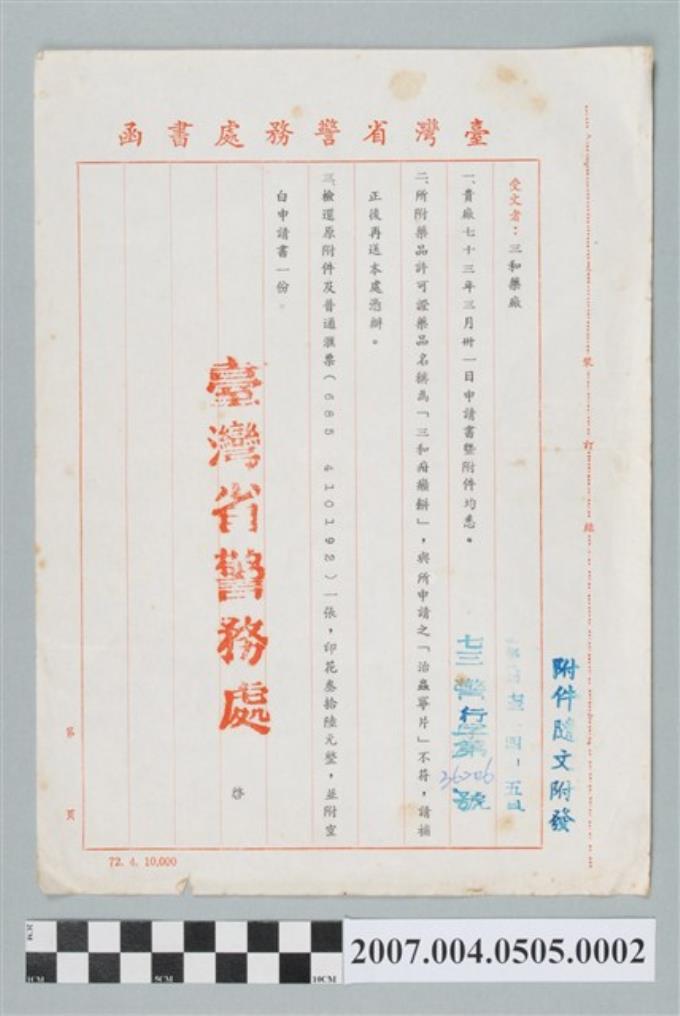 臺灣省警務處書函
裝
訂
線
附件隨文附發
四 五
七三警行字第36206號
受文者：三和藥廠
一、貴廠七十三年三月卅一日申請書暨附件均悉。
二、所附藥品許可證藥品名稱為「三和 」，與所申請之「治蟲寧片」不符，請補
正後再送本處憑辦。
三、檢還原附件及普通滙票(685 410192)一張，印花叁拾陸元整，並附空
白申請書一份。
臺灣省警務處 啓
第 頁
72. 4. 10,000
1CM
1CM
5CM
10CM
2007.004.0505.0002